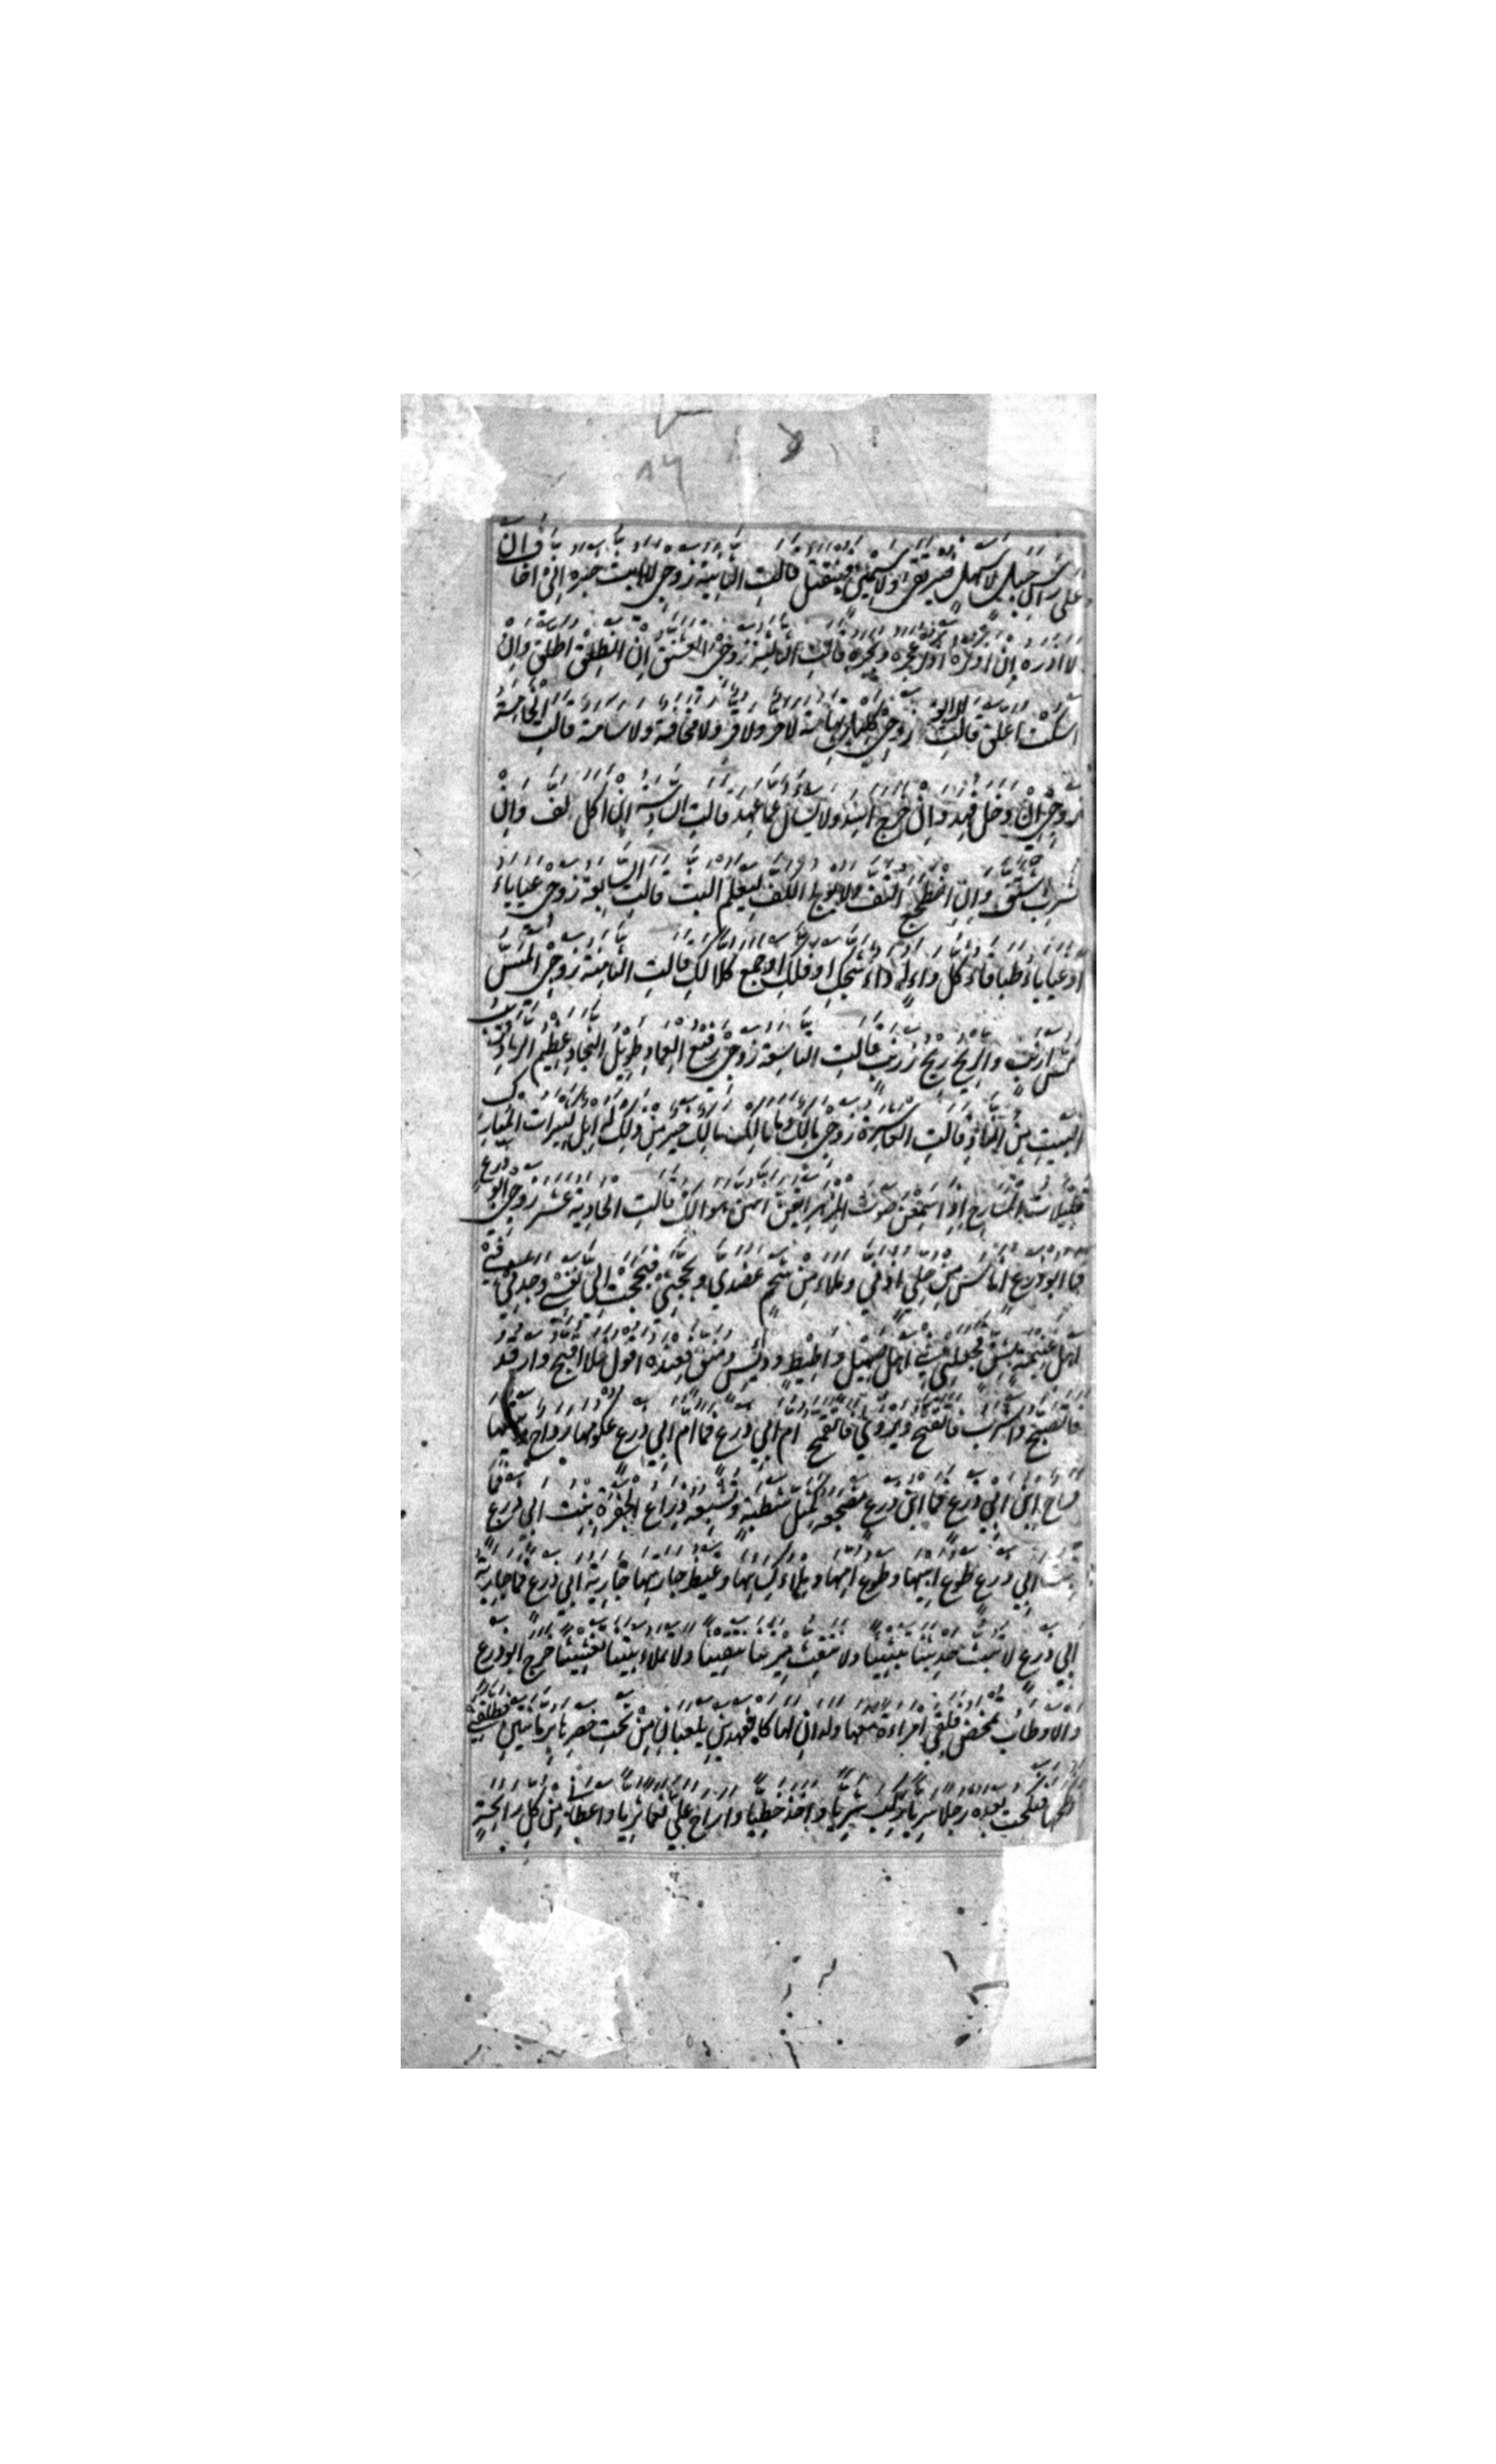 ٨٦
على راس جبل لا سهل فيرتقى ولا سمين فينتقل قالت الثانية زوجي لا ابث خبره اني اخاف ان
لا اذره ان اذكره اذكر عجره وبجره قالت الثالثة زوجي العشنق ان انطلق اطلق وان
اسكت اعلق قالت الرابعة زوجي كليل تهامة لا حر ولا قر ولا مخافة ولا سامة قالت الخامسة
زوجي ان دخل فهد وان خرج اسد ولا يسال عما عهد قالت السادسة ان اكل لف وان
شرب اشتف وان اضطجع التف ولا يولج الكف ليعلم البث قالت السابعة زوجي عياياء
او غياياء طباقاء كل داء له داء شجك او فلك او جمع كلا لك قالت الثامنة زوجي المس
مس ارنب والريح ريح زرنب قالت التاسعة زوجي رفيع العماد طويل النجاد عظيم الرماد قريب
البيت من الناد قالت العاشرة زوجي مالك وما مالك مالك خير من ذلك له ابل كثيرات المبارك
قليلات المسارح اذا سمعن صوت المزهر ايقن انهن هوالك قالت الحادية عشر زوجي ابو زرع
فما ابو زرع اناس من حلي اذني وملاء من شحم عضدي وبجحني فبجحت الي نفسي وجدني في
اهل غنيمة بشق فجعلني في اهل صهيل واطيط ودائس ومنق فعنده اقول فلا اقبح وارقد
فاتصبح واشرب فاتقنح ويروى فاتقمح ام ابي زرع فما ام ابي زرع عكومها رداح وبيتها
فساح ابن ابي زرع فما ابن زرع مضجعه كمسل شطبة وتشبعه ذراع الجفرة بنت ابي زرع فما
بنت ابي زرع طوع ابيها وطوع امها وملاء كسائها وغيظ جارتها جارية ابي زرع فما جارية
ابي زرع لا تبث حديثنا تبثيثا ولا تنقث ميرتنا تنقيثا ولا تملاء بيتنا تعشيشا خرج ابو زرع
والاوطاب تمخض فلقي امراءة معها ولدان لها كالفهدين يلعبان من تحت خصرها برمانتين فطلقني
ونكحها فنكحت بعده رجلا سريا ركب شريا واخذ خطيا واراح علي نعما ثريا واعطاني من كل رائحة